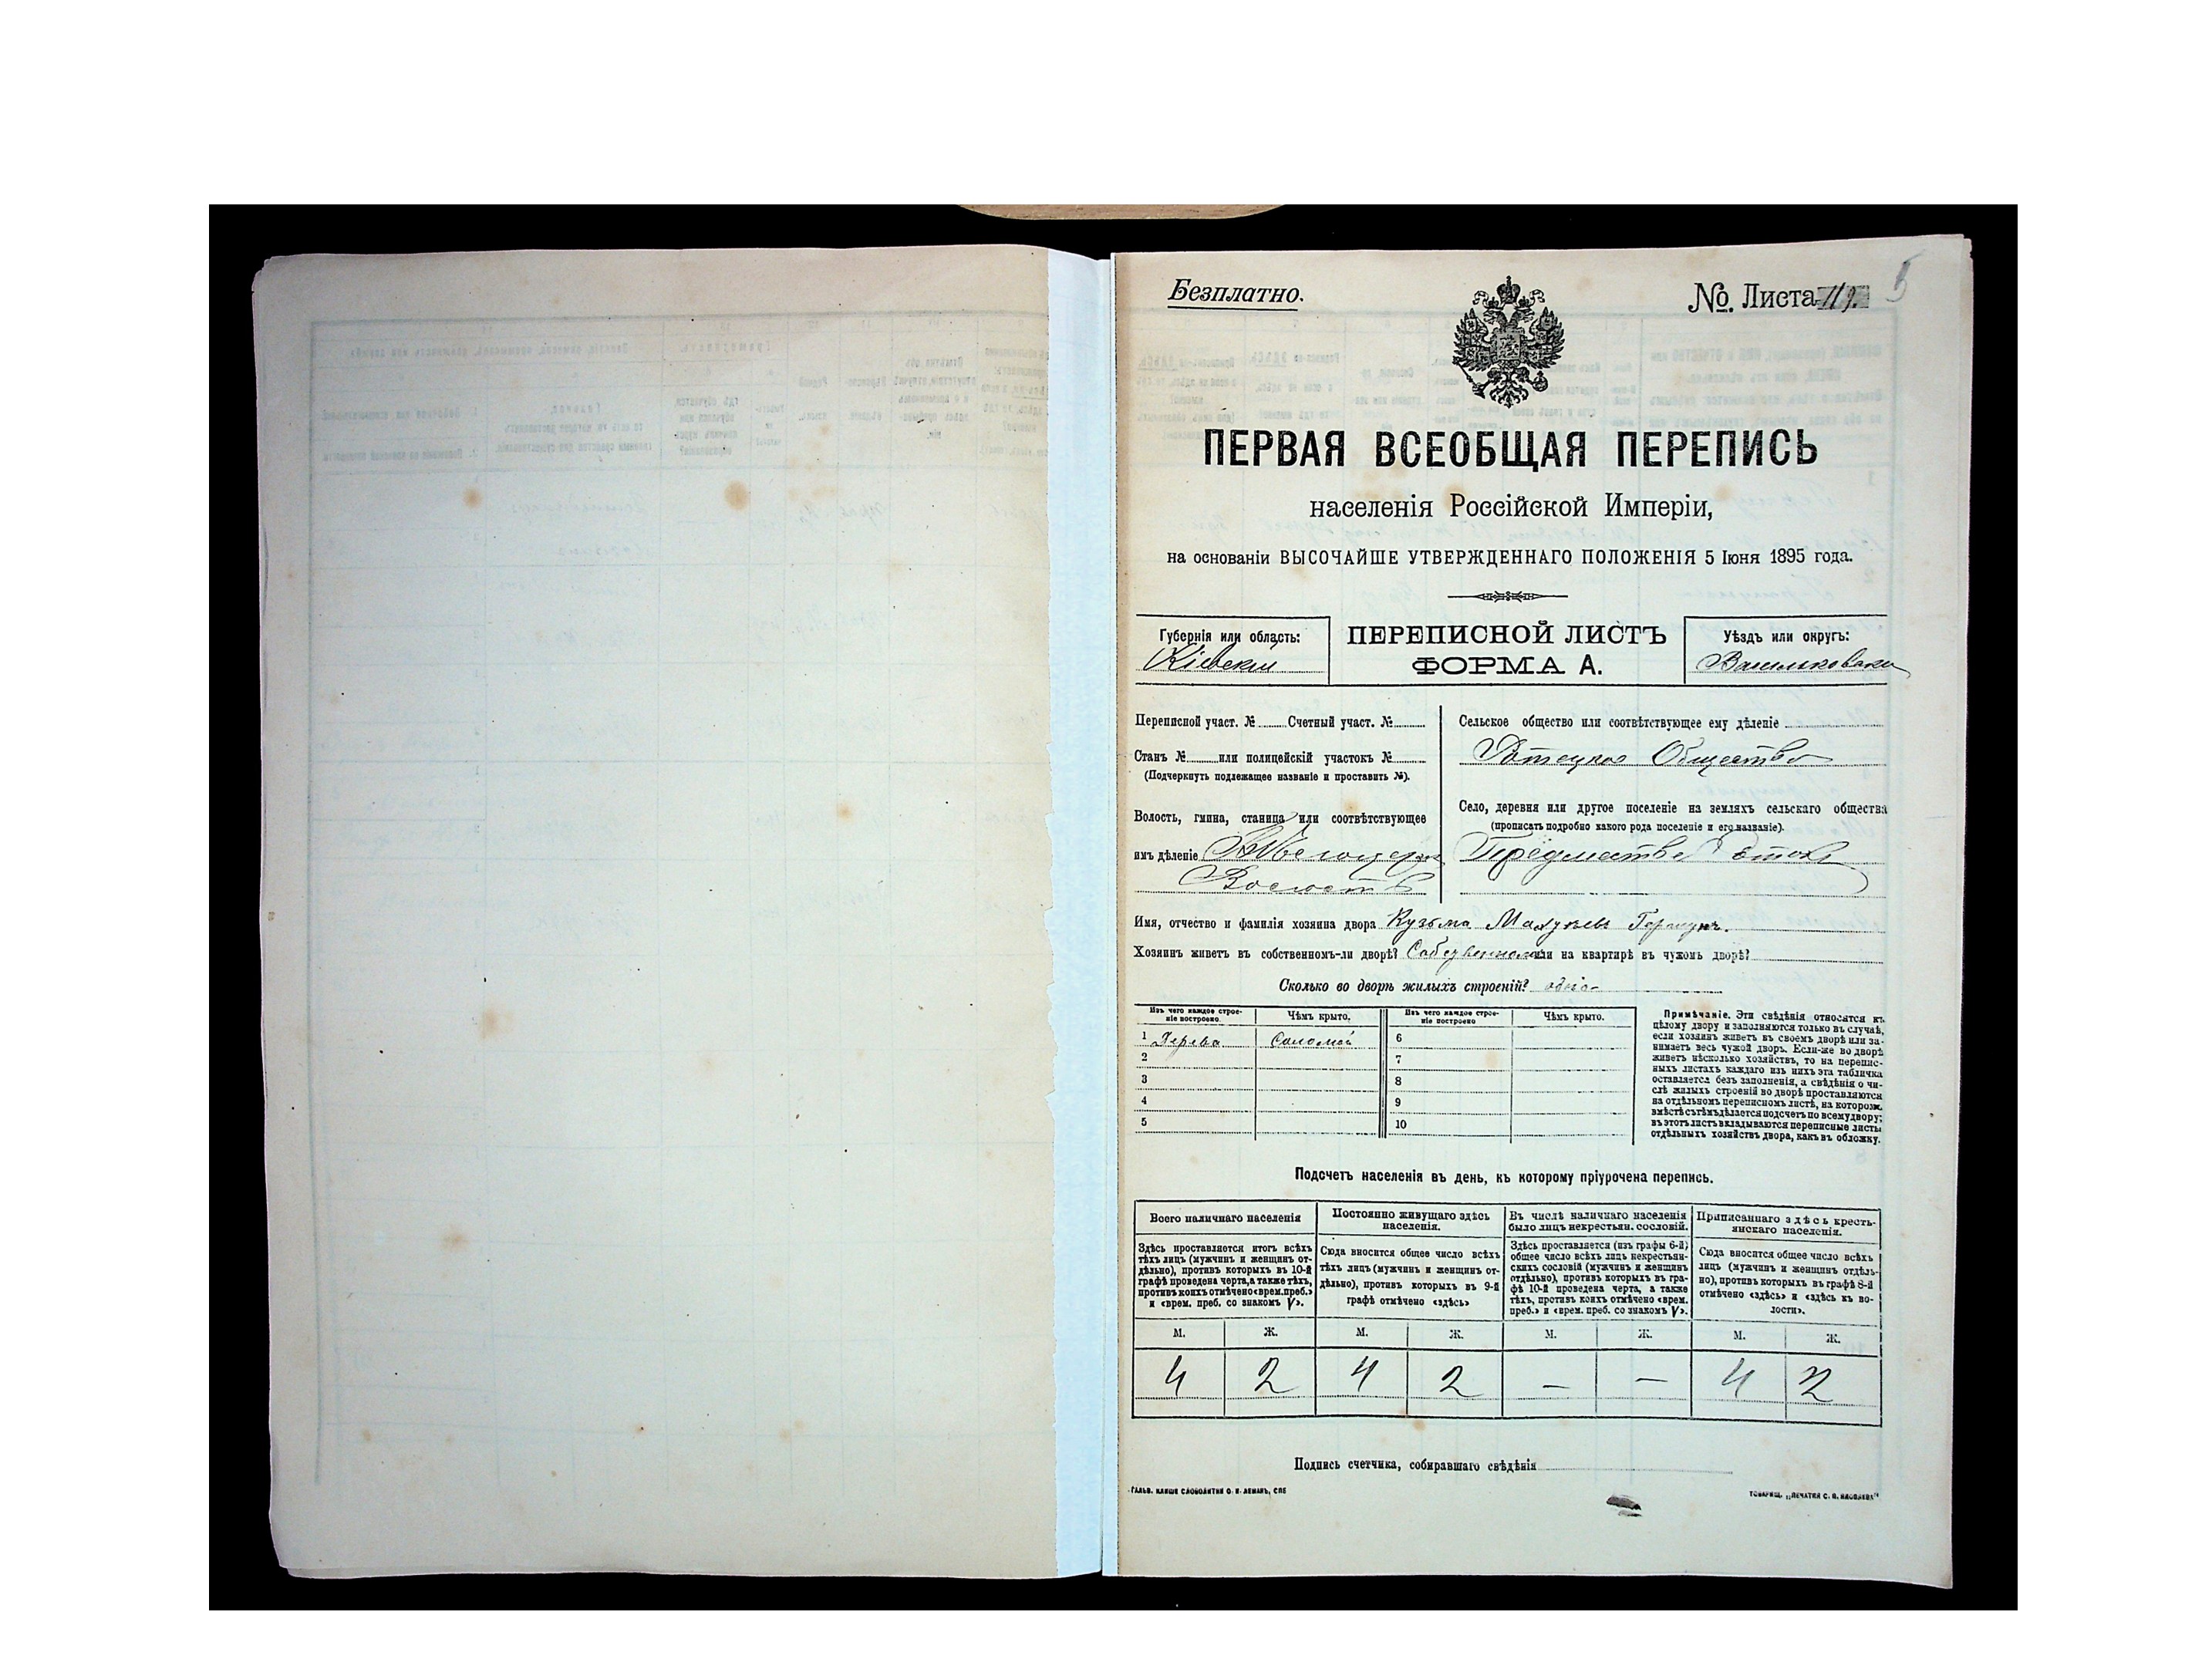 Безплатно.
№ Листа 119.
5
ПЕРВАЯ ВСЕОБЩАЯ ПЕРЕПИСЬ
населенія Россійской Имперіи,
на основаніи ВЫСОЧАЙШЕ УТВЕРЖДЕННАГО ПОЛОЖЕНІЯ 5 Іюня 1895 года.
Губернія или область:
Кіевскій
ПЕРЕПИСНОЙ ЛИСТЪ
ФОРМА А.
Уѣздъ или округъ:
Васильковскій
Переписной участ. № Счетный участ. №
Станъ № или полицейскій участокъ №
(Подчеркнуть подлежащее названіе и проставить №).
Волость, гмина, станица или соотвѣтствующее
имъ дѣленіе
Волость
Сельское общество или соотвѣтствующее ему дѣленіе
Общество
Село, деревня или другое поселеніе на земляхъ сельскаго общества
(прописать подробно какого рода поселеніе и его названіе).
Предместье
Имя, отчество и фамилія хозяина двора Кузьма
Хозяинъ живетъ въ собственномъ-ли дворѣ? или на квартирѣ въ чужомъ дворѣ?
Сколько во дворѣ жилыхъ строеній? одно
Изъ чего каждое строеніе построено.
Чѣмъ крыто.
Изъ чего каждое строеніе построено
Чѣмъ крыто.
1 Дерева Соломой 6
2 7
3 8
4 9
5 10
Примѣчаніе. Эти свѣдѣнія относятся къ
цѣлому двору и заполняются только въ случаѣ,
если хозяинъ живетъ въ своемъ дворѣ или за-
нимаетъ весь чужой дворъ. Если-же во дворѣ
живетъ нѣсколько хозяйствъ, то на перепис-
ныхъ листахъ каждаго изъ нихъ эта табличка
оставляется безъ заполненія, а свѣдѣнія о чи-
слѣ жилыхъ строеній во дворѣ проставляются
на отдѣльномъ переписномъ листѣ, на которомъ
вмѣстѣ съ тѣмъ дѣлается подсчетъ по всему двору;
въ этотъ листъ вкладываются переписные листы
отдѣльныхъ хозяйствъ двора, какъ въ обложку.
Подсчетъ населенія въ день, къ которому пріурочена перепись.
Всего наличнаго населенія
Здѣсь проставляется итогъ всѣхъ
тѣхъ лицъ (мужчинъ и женщинъ от-
дѣльно), противъ которыхъ въ 10-й
графѣ проведена черта, а также тѣхъ,
противъ коихъ отмѣчено «врем. преб.»
и «врем. преб. со знакомъ V».
Постоянно живущаго здѣсь
населенія.
Сюда вносится общее число всѣхъ
тѣхъ лицъ (мужчинъ и женщинъ от-
дѣльно), противъ которыхъ въ 9-й
графѣ отмѣчено «здѣсь»
Въ числѣ наличнаго населенія
было лицъ некрестьян. сословій.
Здѣсь проставляется (изъ графы 6-й)
общее число всѣхъ лицъ некрестьян-
скихъ сословій (мужчинъ и женщинъ
отдѣльно), противъ которыхъ въ гра-
фѣ 10-й проведена черта, а также
тѣхъ, противъ коихъ отмѣчено «врем.
преб.» и «врем. преб. со знакомъ V».
Приписаннаго здѣсь кресть-
янскаго населенія.
Сюда вносится общее число всѣхъ
лицъ (мужчинъ и женщинъ отдѣль-
но), противъ которыхъ въ графѣ 8-й
отмѣчено «здѣсь» и «здѣсь къ во-
лости».
М. Ж. М. Ж. М. Ж. М. Ж.
4 2 4 2 — — 4 2
Подпись счетчика, собиравшаго свѣдѣнія
ГАЛЬВ. КЛИШЕ СЛОВОЛИТНИ О. И. ЛЕМАНЪ, СПБ
ТОВАРИЩ. „ПЕЧАТНЯ С. П. ЯКОВЛЕВА"